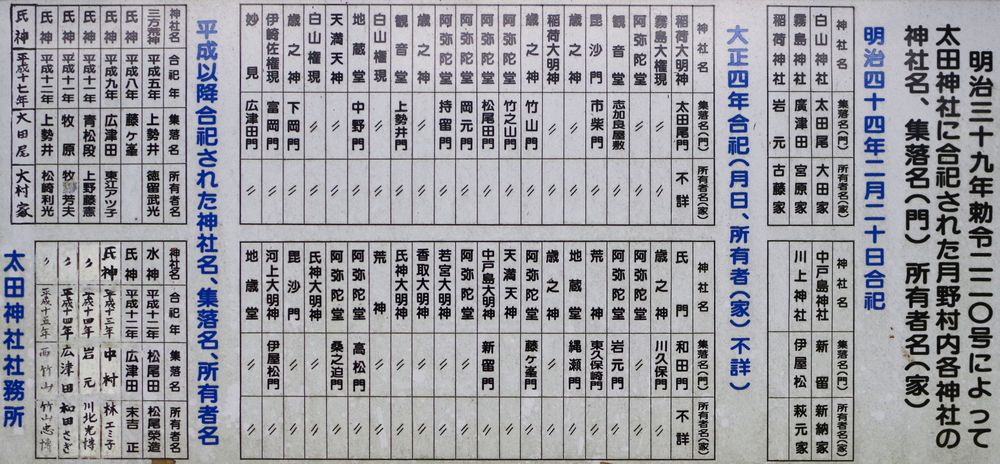 明治三十九年勅令二二〇号によって
太田神社に合祀された月野村内各神社の
神社名、集落名(門)所有者名(家)
明治四十四年二月二十日合祀
神社名 集落名(門) 所有者名(家)
白山神社 太田尾 大田家
霧島神社 廣津田 宮原家
稲荷神社 岩元 古藤家
神社名 集落名(門) 所有者名(家)
中戸島神社 新留 新納家
川上神社 伊屋松 萩元家
大正四年合祀(月日、所有者(家)不詳)
神社名 集落名(門) 所有者名(家)
稲荷大明神 太田尾門 不詳
霧島大権現 〃 〃
阿弥陀堂 〃 〃
観音堂 志加良屋敷 〃
毘沙門 市柴門 〃
歳之神 〃 〃
稲荷大明神 〃 〃
歳之神 竹山門 〃
阿弥陀堂 竹之山門 〃
阿弥陀堂 松尾田門 〃
阿弥陀堂 岡元門 〃
阿弥陀堂 持留門 〃
歳之神 〃 〃
観音堂 上勢井門 〃
白山権現 〃 〃
地蔵堂 中野門 〃
天満天神 〃 〃
白山権現 〃 〃
歳之神 下岡門 〃
伊崎佐権現 富岡門 〃
妙見 広津田門 〃
神社名 集落名(門) 所有者名(家)
氏門 和田門 不詳
歳之神 川久保門 〃
阿弥陀堂 〃 〃
阿弥陀堂 岩元門 〃
荒神 東久保崎門 〃
地蔵堂 縄瀬門 〃
歳之神 〃 〃
阿弥陀堂 藤ヶ峯門 〃
天満天神 〃 〃
中戸島大明神 新留門 〃
阿弥陀堂 〃 〃
若宮大明神 〃 〃
香取大明神 〃 〃
氏神大明神 〃 〃
荒神 〃 〃
阿弥陀堂 高松門 〃
阿弥陀堂 桑之迫門 〃
氏神大明神 〃 〃
毘沙門 〃 〃
河上大明神 伊屋松門 〃
地蔵堂 〃 〃
平成以降合祀された神社名、集落名、所有者名
神社名 合祀年 集落名 所有者名
三方荒神 平成五年 上勢井 徳留武光
氏神 平成八年 藤ヶ峯 〃
氏神 平成九年 広津田 東江アツ子
氏神 平成十一年 青松段 上野藤憲
氏神 平成十二年 牧原 牧芳夫
氏神 平成十二年 上勢井 松崎利光
氏神 平成十七年 大田尾 大村家
神社名 合祀年 集落名 所有者名
水神 平成十二年 松尾田 松尾栄造
氏神 平成十二年 広津田 末吉正
氏神 平成十三年 中村 林エミ子
〃 平成十四年 岩元 川北光博
〃 平成十四年 広津田 和田さぎ
〃 平成十五年 西竹山 竹山忠博
太田神社社務所